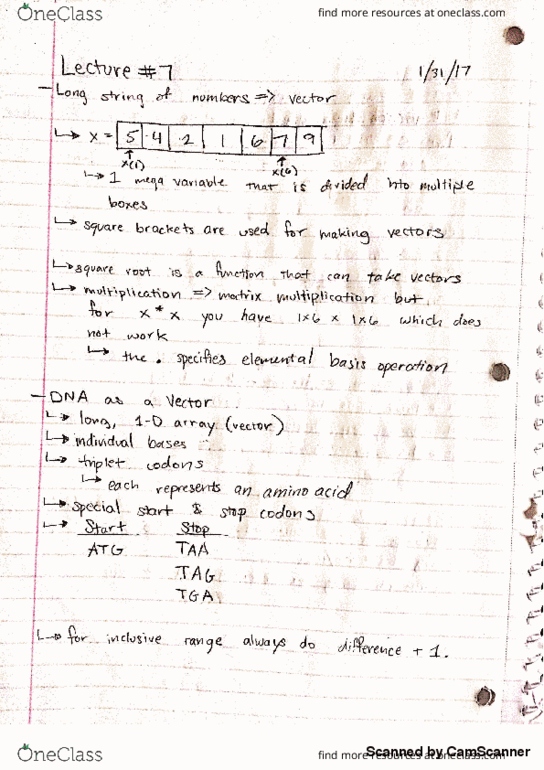 OneClass
find more resources at oneclass.com
Lecture #7
1/31/17
- Long string of numbers => vector
↳ x = 5 4 2 1 6 7 9
x(1) x(6)
↳ 1 mega variable that is divided into multiple
boxes
↳ square brackets are used for making vectors
↳ square root is a function that can take vectors
↳ multiplication => matrix multiplication but
for x * x you have 1x6 x 1x6 which does
not work
↳ the . specifies elemental basis operation
- DNA as a Vector
↳ long, 1-D array (vector)
↳ individual bases
↳ triplet codons
↳ each represents an amino acid
↳ special start & stop codons
↳ Start Stop
ATG TAA
TAG
TGA
↳ for inclusive range always do difference + 1.
OneClass
find more resources at oneclass.com
Scanned by CamScanner